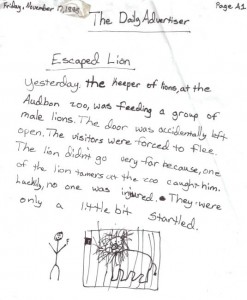 Friday, November 17, 1999 Page A1
The Daily Advertiser
Escaped Lion
Yesterday, the keeper of lions, at the
Audbon zoo, was feeding a group of
male lions. The door was accidentally left
open. The visitors were forced to flee.
The lion didn't go very far because, one
of the lion tamers at the zoo caught him.
Luckily, no one was injured. They were
only a little bit startled.